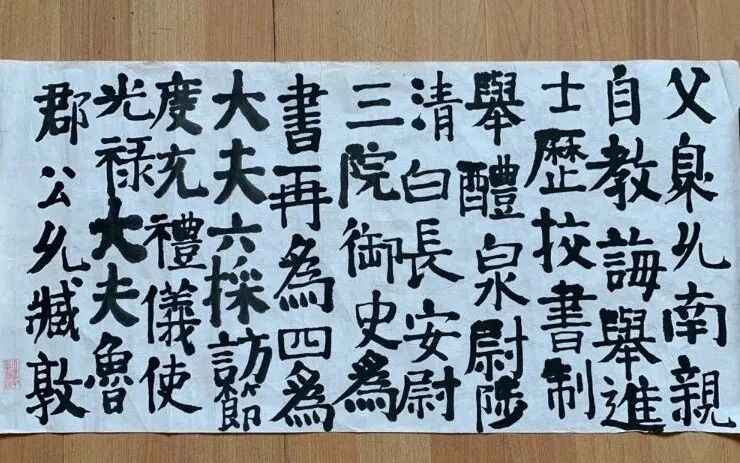 父臮允南親
自教誨舉進
士歷挍書制
舉醴泉尉陟
清白長安尉
三院御史為
書再為四為
大夫六採訪節
度充禮儀使
光禄大夫魯
郡公允臧敦